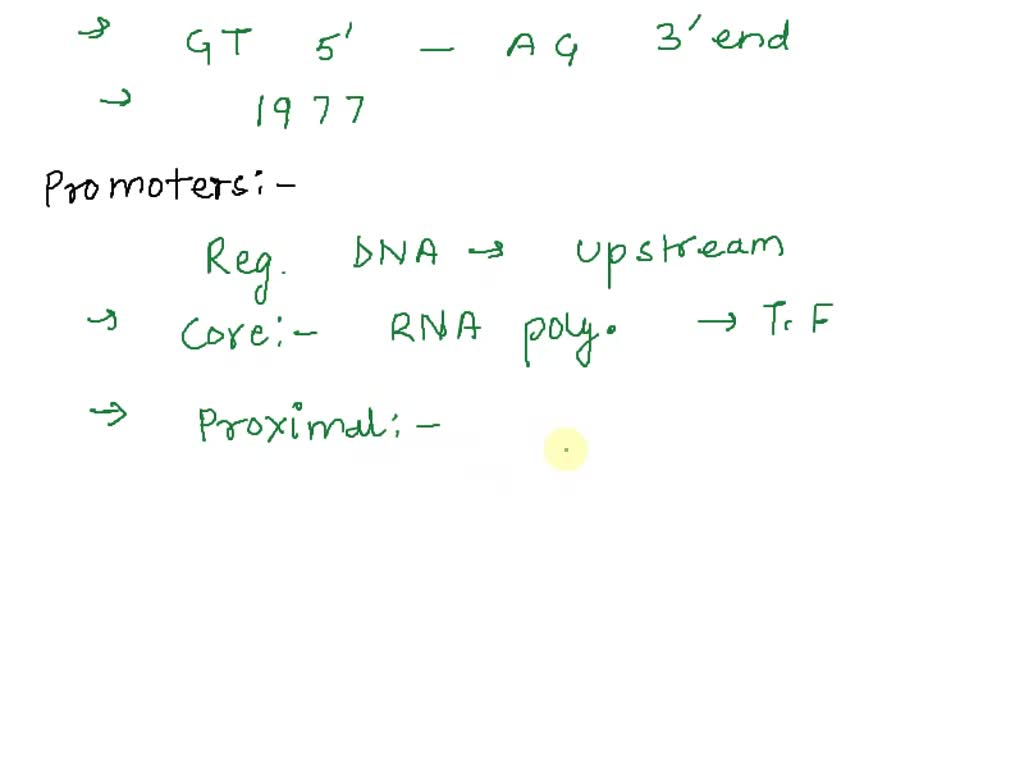 → GT 5' — AG 3' end
→ 1977
Promoters:-
Reg. DNA → upstream
→ Core:- RNA poly. → T. F
→ Proximal:-